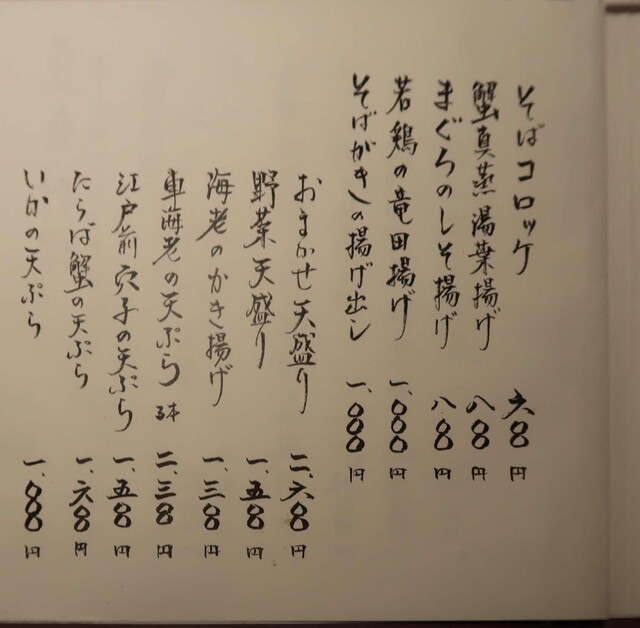 そばコロッケ 六〇〇円
蟹真蒸湯葉揚げ 八〇〇円
まぐろのしそ揚げ 八〇〇円
若鶏の竜田揚げ 一、〇〇〇円
そばがきの揚げ出し 一、〇〇〇円
おまかせ天盛り 二、六〇〇円
野菜天盛り 一、五〇〇円
海老のかき揚げ 一、三〇〇円
車海老の天ぷら 二、三〇〇円
江戸前穴子の天ぷら 一、五〇〇円
たらば蟹の天ぷら 一、六〇〇円
いかの天ぷら 一、〇〇〇円